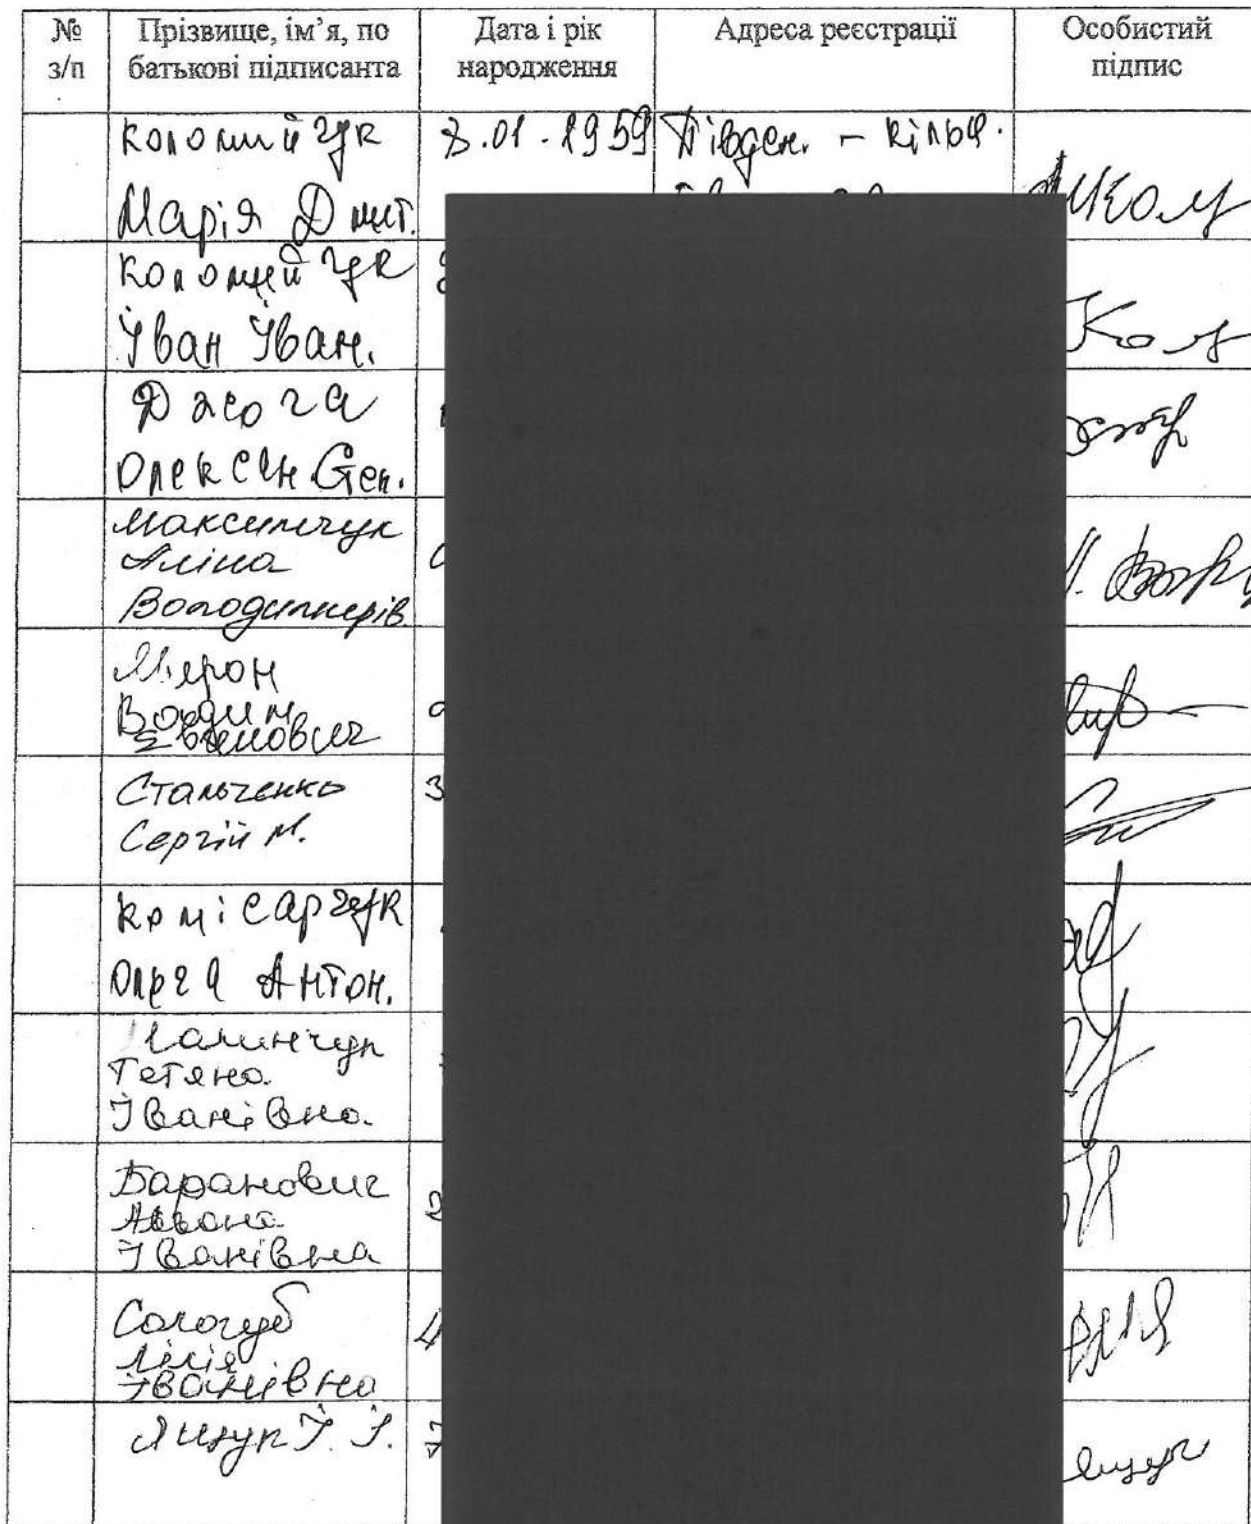 № з/п
Прізвище, ім’я, по батькові підписанта
Дата і рік народження
Адреса реєстрації
Особистий підпис
Коломийчук 3.01.1959 Півден. - Кільц.
Марія Дмит.
Коломийчук
Іван Іван.
Джога
Олексан. Степ.
Максимчук
Аліна
Володимирів
Мирон
Євгенович
Стальченко
Сергій М.
Комісарчук
Ольга Антон.
Тетяна
Іванівна.
Баранович
Іванівна
Сологуб
Лілія
Іванівна
Ящук І. І.